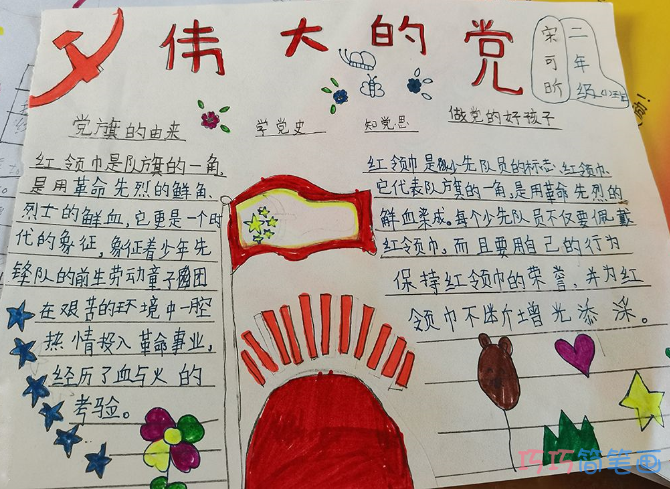 伟大的党
宋可昕
二年级
党旗的由来
学党史
知党思
做党的好孩子
红领巾是队旗的一角,
是用革命先烈的鲜角、
烈士的鲜血,它更是一个时
代的象征,象征着少年先
锋队的前生劳动童子团
在艰苦的环境中一腔
热情投入革命事业,
经历了血与火的
考验。
红领巾是少先队员的标志、红领巾、
它代表队旗的一角,是用革命先烈的
鲜血染成。每个少先队员不仅要佩戴
红领巾,而且要用自己的行为
保持红领巾的荣誉,并为红
领巾不断增光添采。
巧巧简笔画